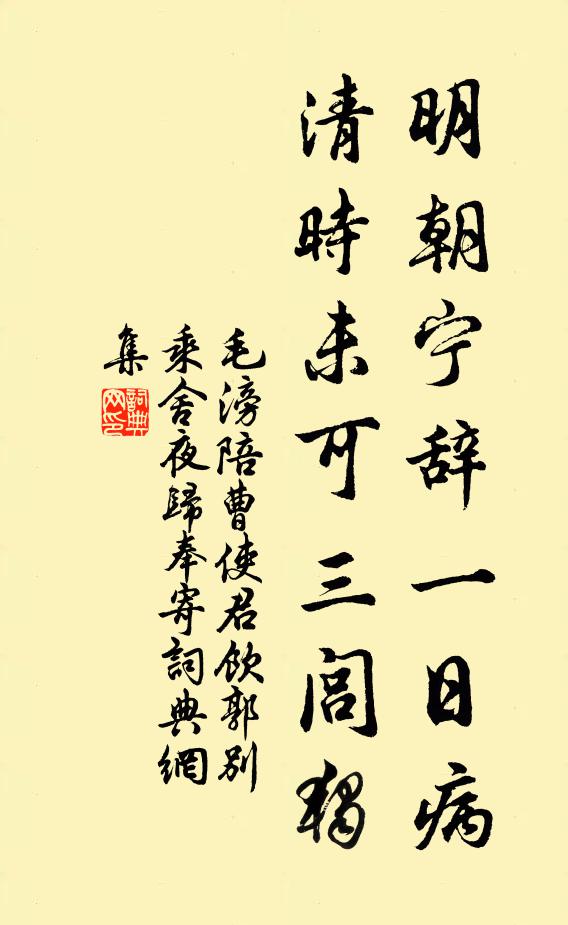 明朝宁辞一日病
清時未可三閭獨
毛滂陪曹使君飲郭別
乘舍夜歸奉寄詞典網
集
詞典
网印